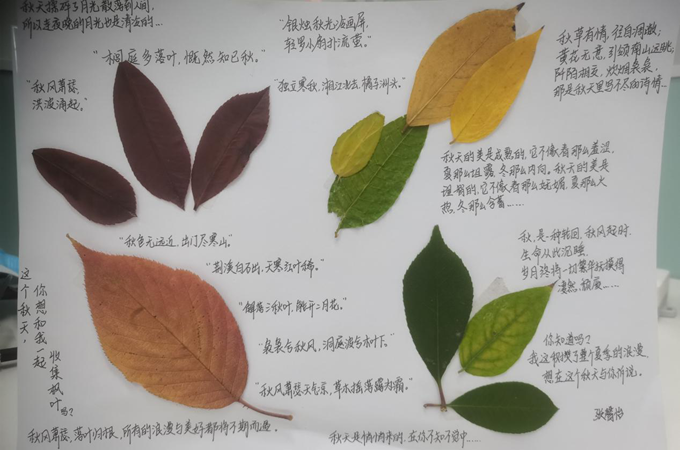 秋天摇碎了月光散落到人间,
所以连夜晚的月光也是清凉的...
"桐庭多落叶,慨然知已秋。"
"银烛秋光冷画屏,
轻罗小扇扑流萤。"
秋草有情,径自凋败;
黄花无意,引领南山远眺;
阡陌相交,炊烟袅袅,
那是秋天里写不尽的诗情...
"秋风萧瑟,
洪波涌起。"
"独立寒秋,湘江北去,橘子洲头。"
秋天的美是成熟的,它不像春那么羞涩,
夏那么坦露,冬那么内向。秋天的美是
理智的,它不像春那么妩媚,夏那么火
热,冬那么含蓄......
"秋色无远近,出门尽寒山。"
"荆溪白石出,天寒红叶稀。"
"解落三秋叶,能开二月花。"
"袅袅兮秋风,洞庭波兮木叶下。"
"秋风萧瑟天气凉,草木摇落露为霜。"
秋,是一种转圜,秋风起时,
生命从此沉睡,
岁月终将一切繁华抚摸得
凄然,颓废......
你知道吗?
我这积攒了整个夏季的浪漫,
想在这个秋天与你诉说。
这个秋天,
你想和我一起
收集枫叶吗?
秋风萧瑟,落叶归根,所有的浪漫与美好都将不期而遇。
秋天是悄悄来的,在你不知不觉中......